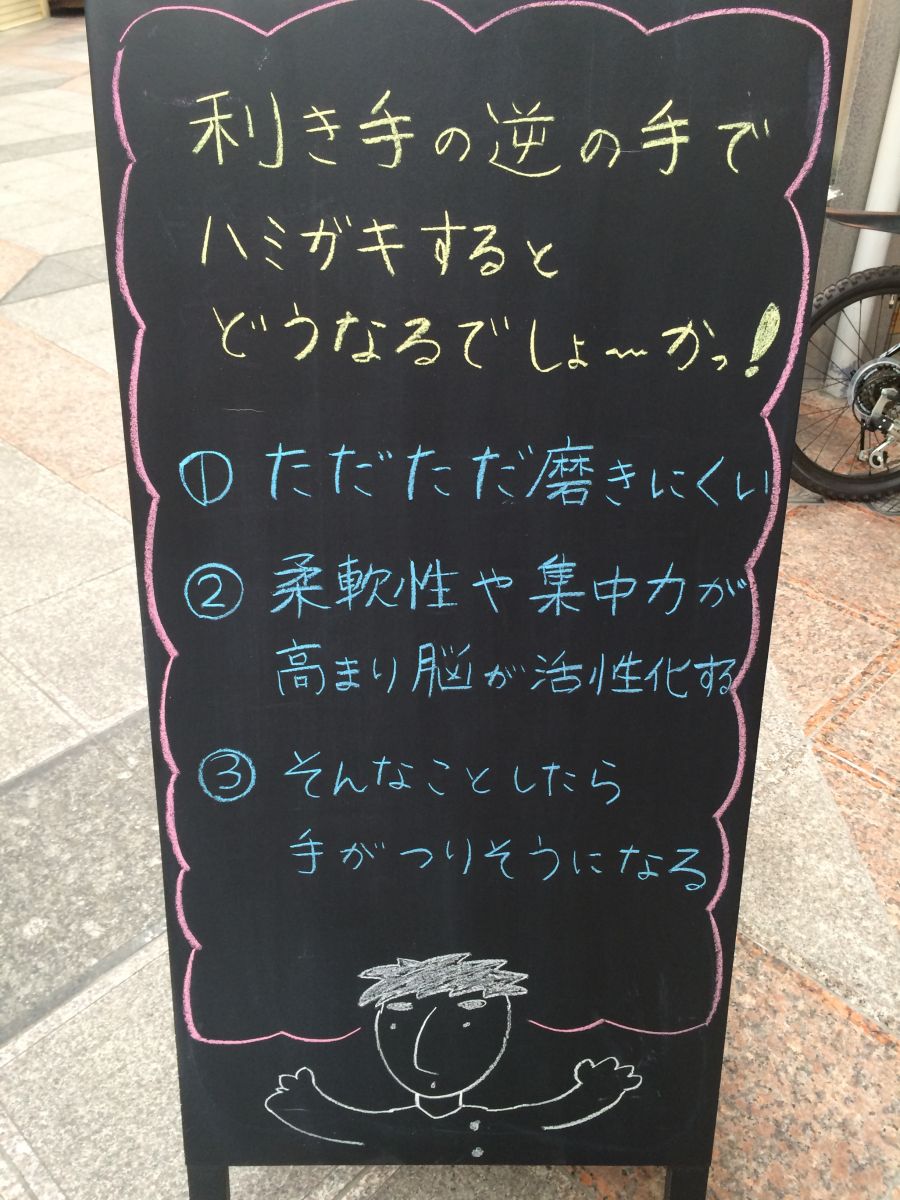 利き手の逆の手で
ハミガキすると
どうなるでしょ〜かっ!
① ただただ磨きにくい
② 柔軟性や集中力が
高まり脳が活性化する
③ そんなことしたら
手がつりそうになる